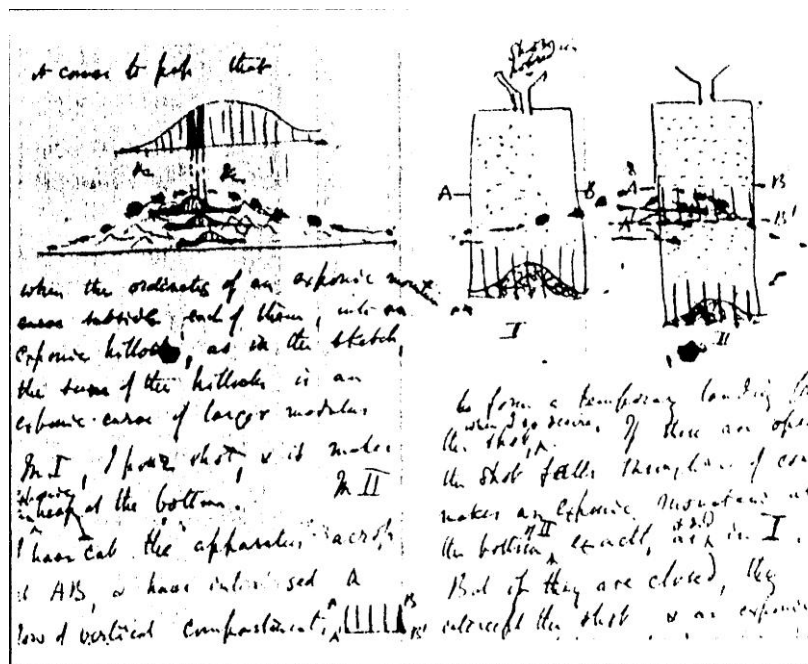 A comes to pass that
when the ordinates of an exponic mountain
curve subside, each of them, into an
exponic hillock, as in the sketch,
the sum of the hillocks is an
exponic curve of larger modulus
In I, I pour shot, & it makes
heap at the bottom. In II
I have cut the apparatus across
at AB, & have interposed a
row of vertical compartments, A B A' B'
Shot poured in
A B
I
A B
A' B'
II
to form a temporary landing for
the shot, when I so desire. If these are open
the shot falls through
makes an exponic mountain at
the bottom of II, exactly as in I.
But if they are closed, they
intercept the shot & an exponic